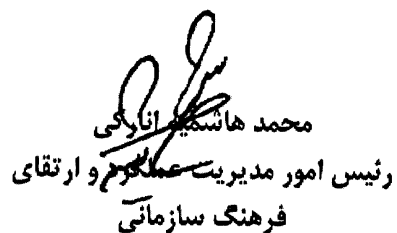 محمد هاشمی انارکی
رئیس امور مدیریت عملکرد و ارتقای
فرهنگ سازمانی